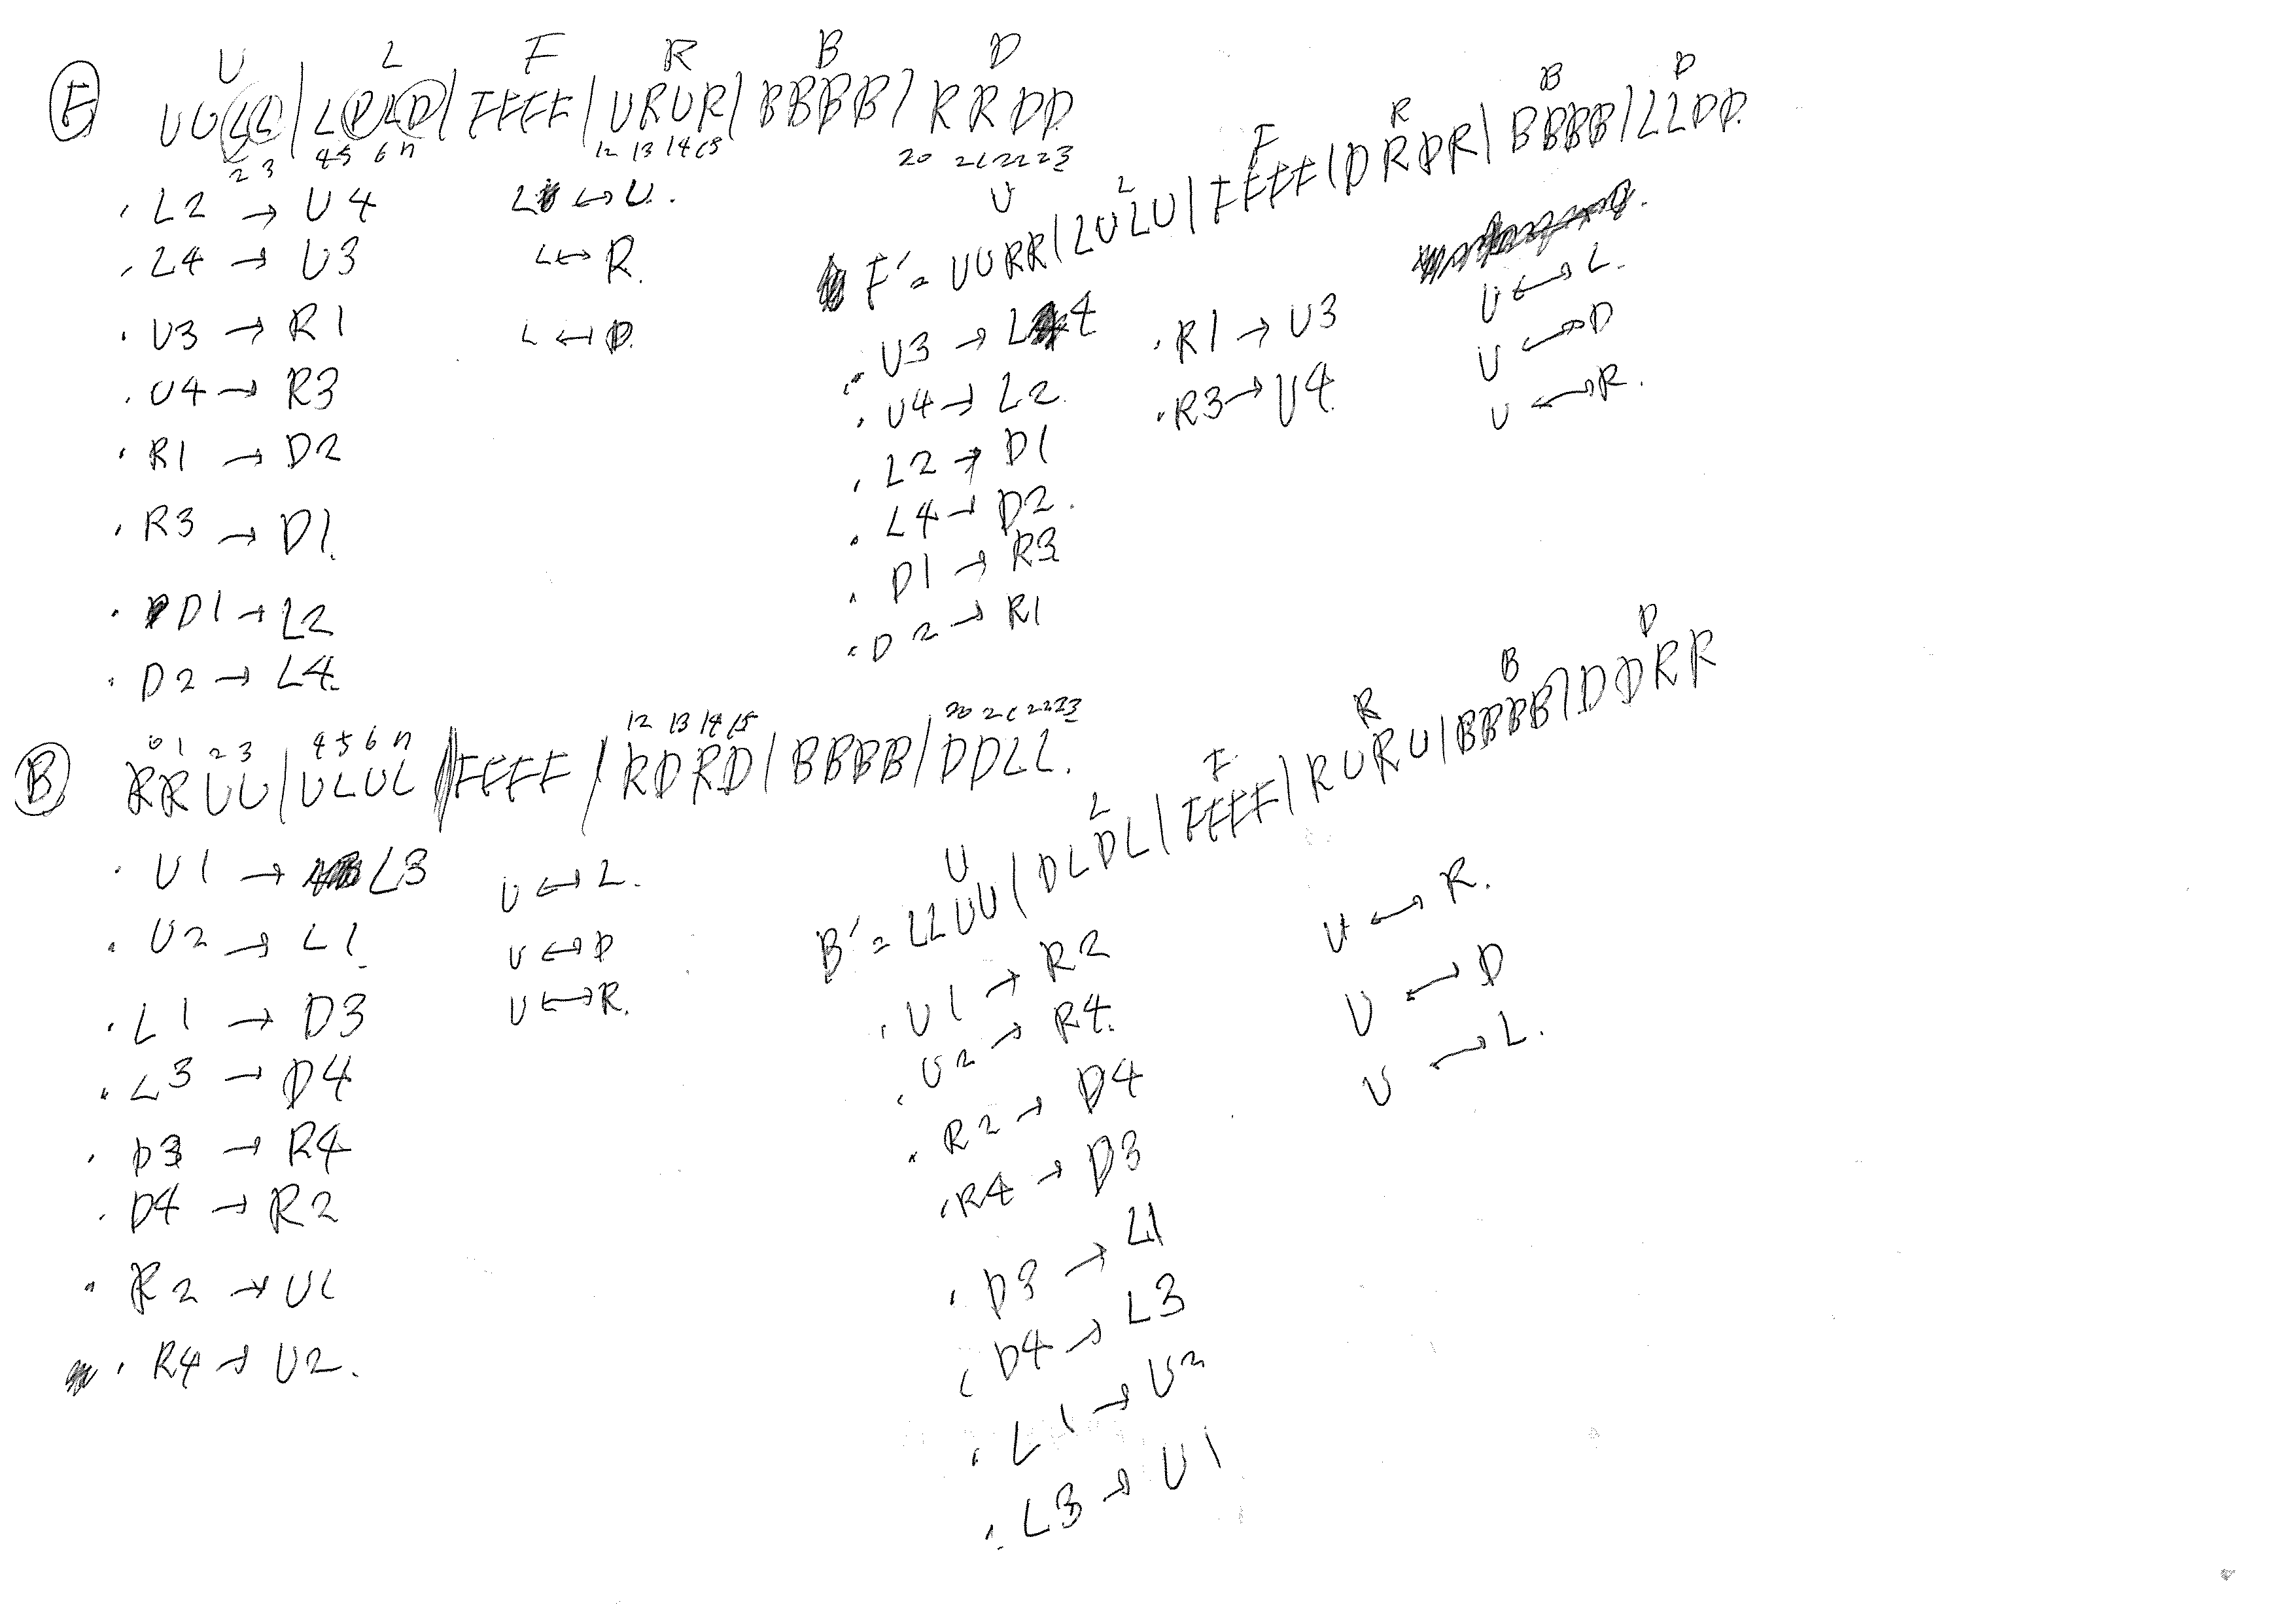 U L F R B D
Ⓕ UULL | LDLD | FFFF | URUR | BBBB | RRDD
2 3 4 5 6 7 12 13 14 15 20 21 22 23
· L2 → U4
· L4 → U3
· U3 → R1
· U4 → R3
· R1 → D2
· R3 → D1.
· D1 → L2
· D2 → L4.
L ↔ U.
L ↔ R.
L ↔ D.
U L F R B D
F' = UURR | LULU | FFFF | DRDR | BBBB | LLDD.
· U3 → L4
· U4 → L2.
· L2 → D1
· L4 → D2.
· D1 → R3
· D2 → R1
· R1 → U3
· R3 → U4
U ↔ L.
U ↔ D
U ↔ R.
0 1 2 3 4 5 6 7 12 13 14 15 20 21 22 23
Ⓑ RRUU | ULUL | FFFF / RDRD | BBBB | DDLL.
· U1 → L3
· U2 → L1
· L1 → D3
· L3 → D4
· D3 → R4
· D4 → R2
· R2 → U1
· R4 → U2.
U ↔ L.
U ↔ D
U ↔ R.
U L F R B D
B' = LLUU | DLDL | FFFF | RURU | BBBB | DDRR
· U1 → R2
· U2 → R4.
· R2 → D4
· R4 → D3
· D3 → L1
· D4 → L3
· L1 → U2
· L3 → U1
U ↔ R.
U ↔ D
U ↔ L.